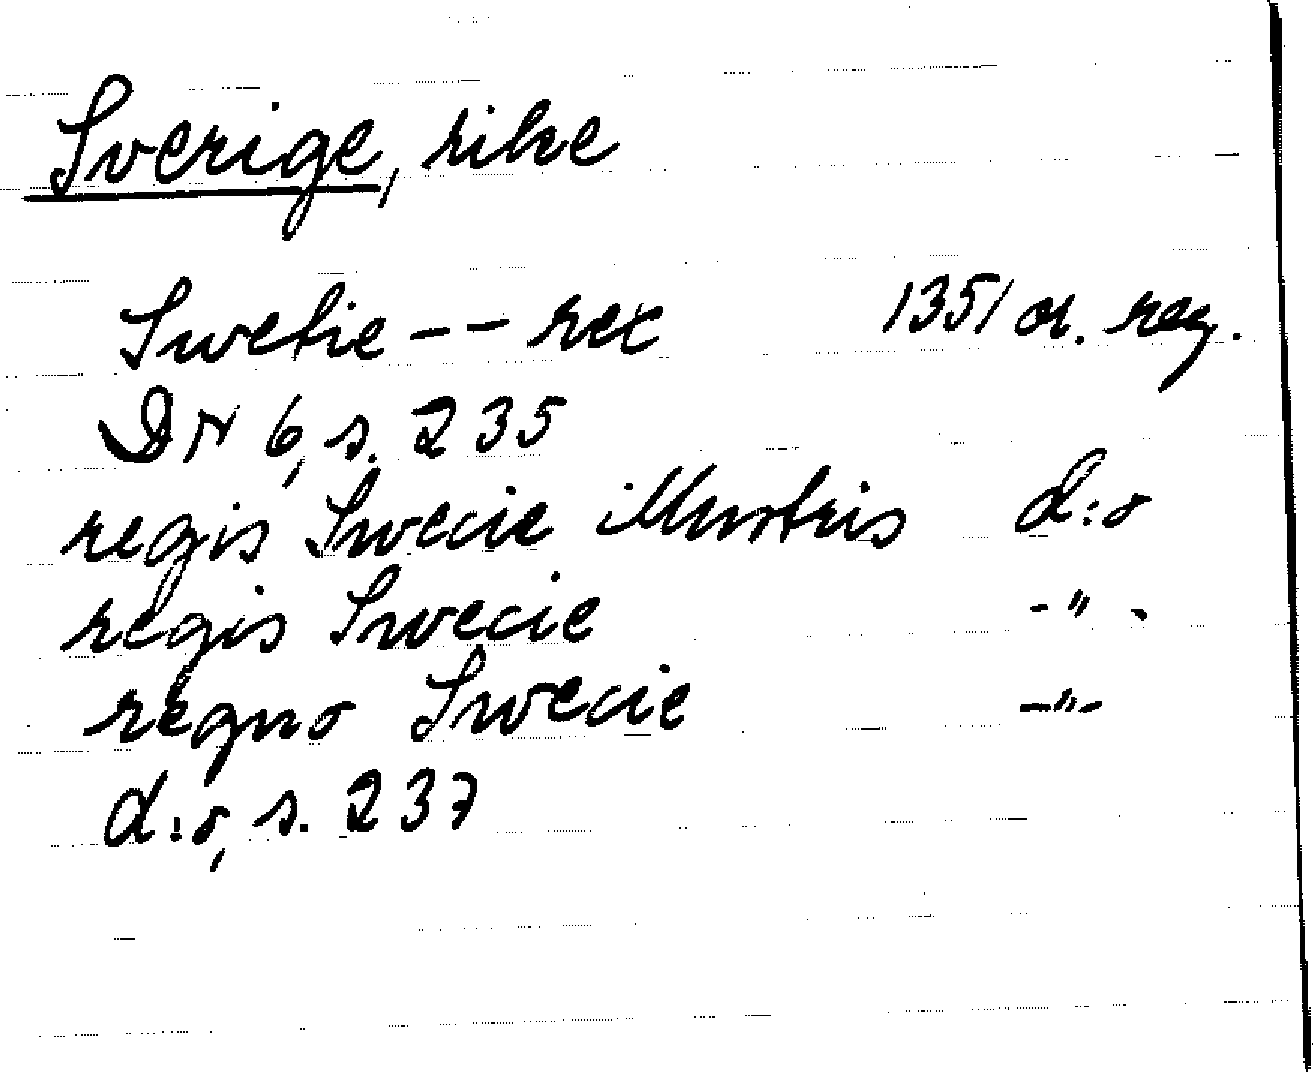 Sverige, rike
Swetie -- rex 1351 or. reg.
DN 6, s. 235
regis Swecie illustris d:o
regis Swecie -"-
regno Swecie -"-
d:o, s. 237